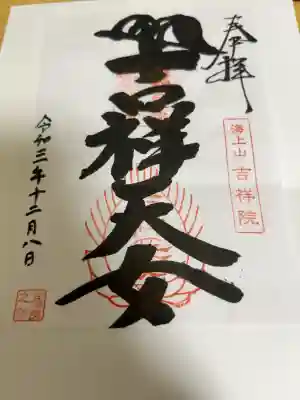 奉拝
海上山 吉祥院
吉祥天女
令和三年十二月八日